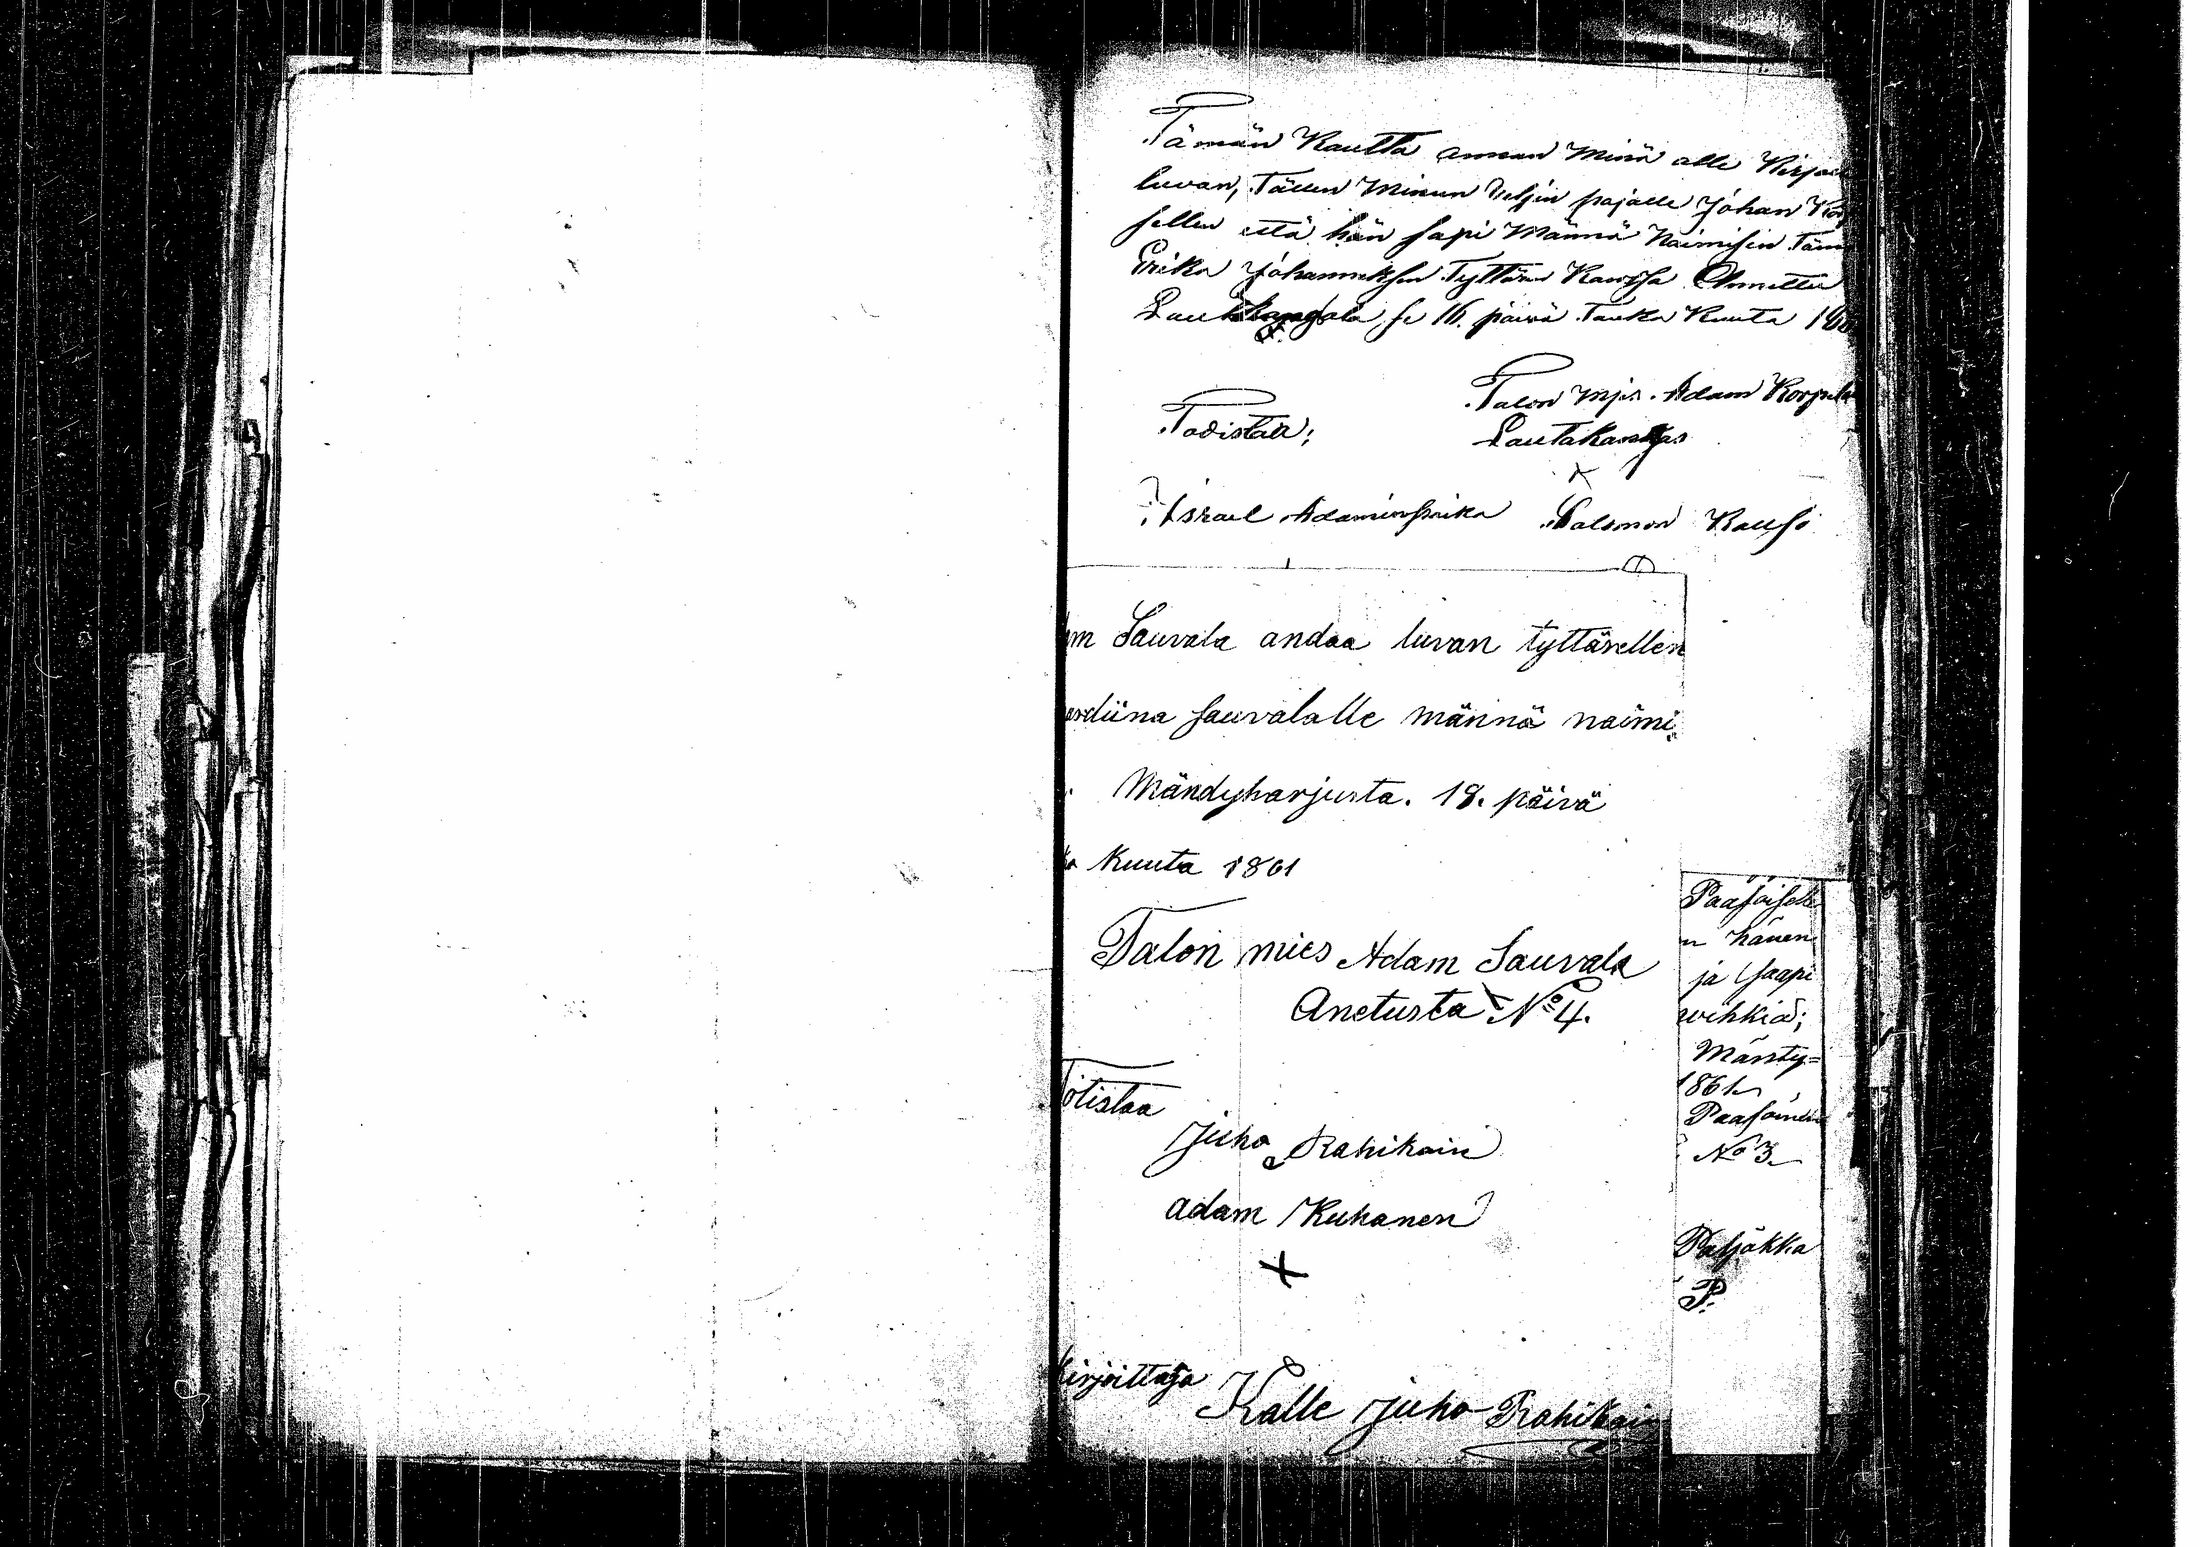 Tämän Kautta annan Minä alle Kirjoi
luvan, Tällen Minun Veljin pojalle Johan Kor
sellen että hän sapi Männä Naimisin Täm
Erika Johanneksen Tyttären Kanssa Annettu
se 16. päivä Tauko Kuuta 186
Talon Mjs. Adam Korpela
Todistaa: Lautakangas
Israel Adaminpoika Salomon Kauso
m Sauvala andaa luvan tyttärellen
ardiina sauvalalle männä naimi
Mändyharjusta. 18. päivä
ka Kuuta 1861
Talon mies Adam Sauvala
Anetusta No 4.
Totistaa
Juho Rahikain
adam Kuhanen
X
Kirjoittaja
Kalle Juho Rahikai
Paasoisele
n hänen
ja saapi
wihkiä;
Mänty=
1861
Paasoinen
No 3
Paljakka
P.